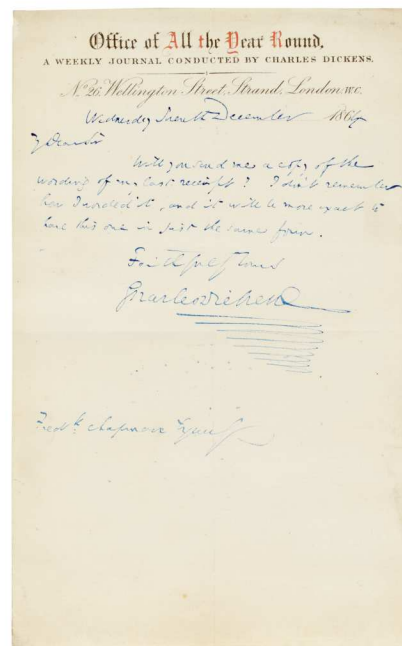 Office of All the Year Round,
A WEEKLY JOURNAL CONDUCTED BY CHARLES DICKENS.
No. 26, Wellington Street, Strand, London, W.C.
Wednesday Seventh December 1864
My Dear Sir
Will you send me a copy of the
wording of my last receipt? I don't remember
how I worded it, and it will be more exact to
have this one in just the same form.
Faithfully Yours
Charles Dickens
Fredk. Chapman Esquire